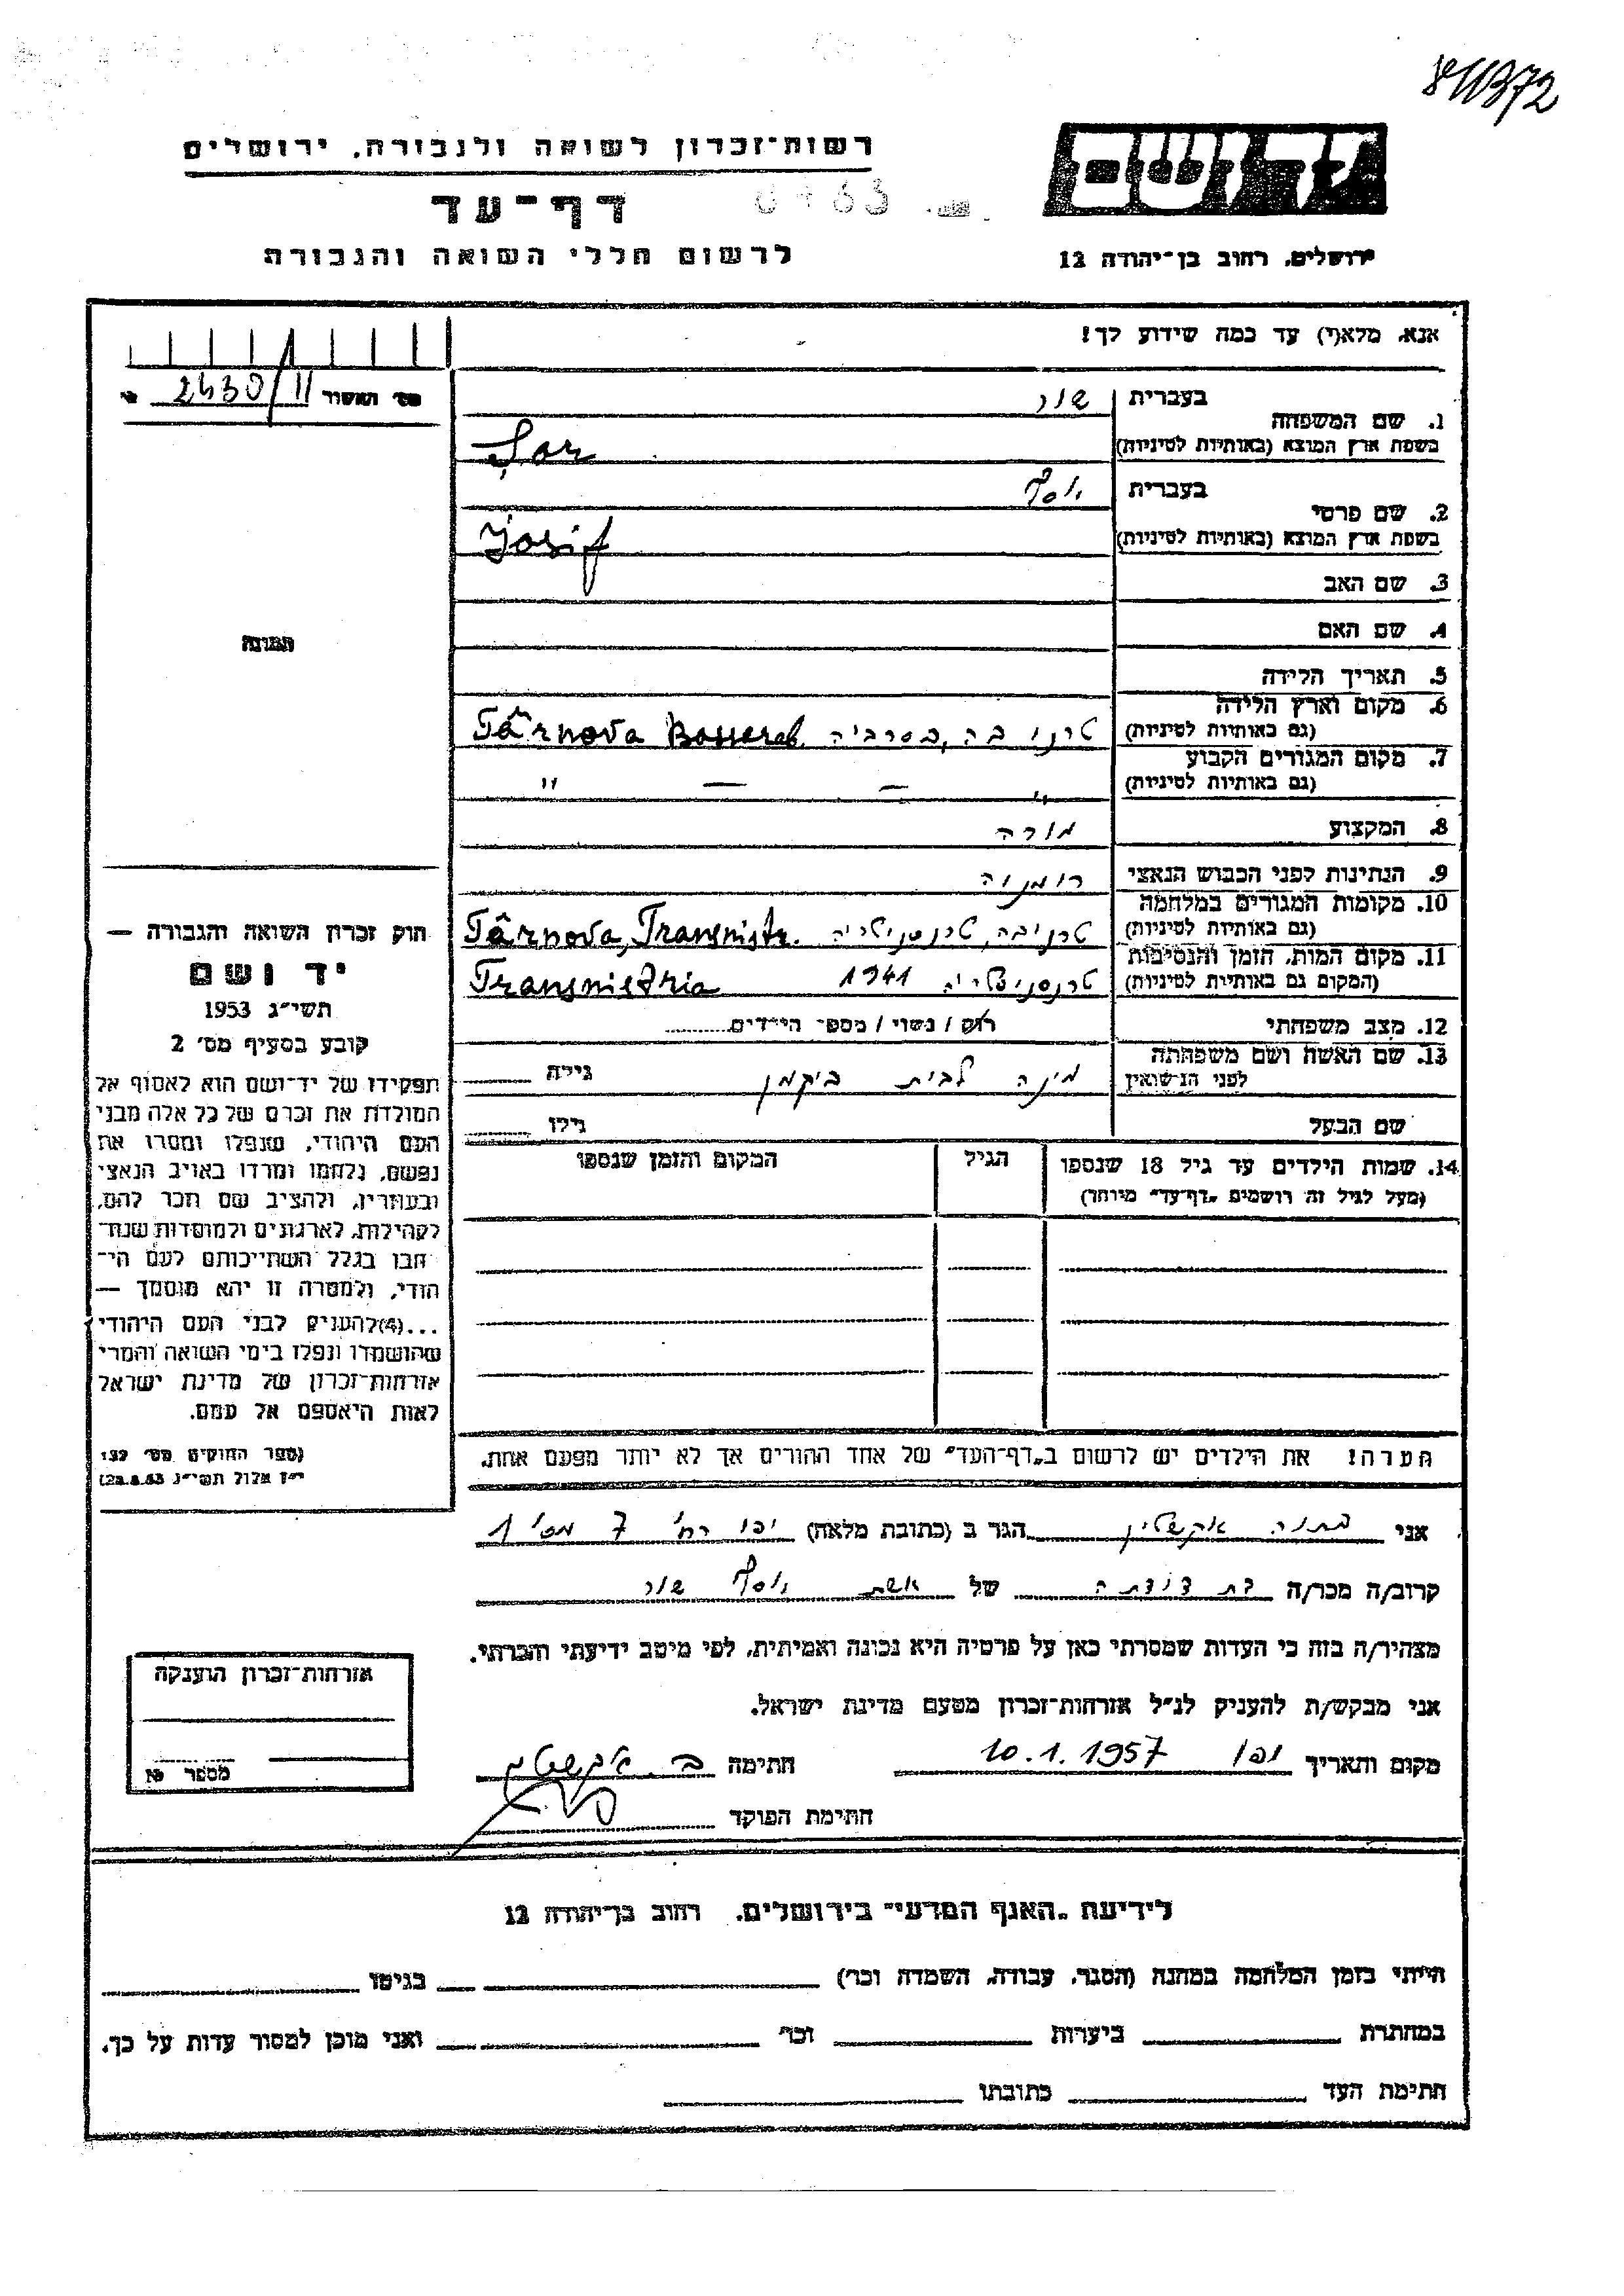 811372
רשות־זכרון לשואה ולגבורה, ירושלים
יד ושם
דף־עד
לרשום חללי השואה והגבורה
ירושלים, רחוב בן־יהודה 12
אנא, מלא(י) עד כמה שידוע לך!
2430/11
1. שם המשפחה
בעברית שור
בשפת ארץ המוצא (באותיות לטיניות) Şor
2. שם פרטי
בעברית יוסף
בשפת ארץ המוצא (באותיות לטיניות) Josif
3. שם האב
4. שם האם
5. תאריך הלידה
6. מקום וארץ הלידה
(גם באותיות לטיניות) טרנובה, בסרביה Târnova Basserab.
7. מקום המגורים הקבוע
(גם באותיות לטיניות) " — — "
8. המקצוע מורה
9. הנתינות לפני הכבוש הנאצי רומניה
10. מקומות המגורים במלחמה
(גם באותיות לטיניות) טרנובה, טרנסניסטריה Târnova, Transnistr.
11. מקום המות, הזמן והנסיבות
(המקום גם באותיות לטיניות) טרנסניסטריה 1941 Transnistria
12. מצב משפחתי רוק / נשוי / מספר הילדים
13. שם האשה ושם משפחתה
לפני הנשואין מינה לבית ביקמן גילה
שם הבעל גילו
14. שמות הילדים עד גיל 18 שנספו הגיל המקום והזמן שנספו
(מעל לגיל זה רושמים "דף־עד" מיוחד)
הערה! את הילדים יש לרשום ב"דף־העד" של אחד ההורים אך לא יותר מפעם אחת.
תמונה
חוק זכרון השואה והגבורה —
יד ושם
תשי"ג 1953
קובע בסעיף מס' 2
תפקידו של יד־ושם הוא לאסוף אל
המולדת את זכרם של כל אלה מבני
העם היהודי, שנפלו ומסרו את
נפשם, נלחמו ומרדו באויב הנאצי
ובעוזריו, ולהציב שם וזכר להם,
לקהילות, לארגונים ולמוסדות שנח־
רבו בגלל השתייכותם לעם הי־
הודי, ולמטרה זו יהא מוסמך —
...(4)להעניק לבני העם היהודי
שהושמדו ונפלו בימי השואה והמרי
אזרחות־זכרון של מדינת ישראל
לאות היאספם אל עמם.
(ספר החוקים מס' 132
י"ז אלול תשי"ג 28.8.53)
אני בתיה הגר ב (כתובת מלאה) יפו רח' 7 מס' 1
קרוב/ה מכר/ה בת דודתה של אשת יוסף שור
מצהיר/ה בזה כי העדות שמסרתי כאן על פרטיה היא נכונה ואמיתית, לפי מיטב ידיעתי והכרתי.
אני מבקש/ת להעניק לנ"ל אזרחות־זכרון מטעם מדינת ישראל.
מקום ותאריך יפו 10.1.1957 חתימה
חתימת הפוקד
אזרחות־זכרון הוענקה
מספר
לידיעת "האגף המדעי" בירושלים, רחוב בן־יהודה 12
הייתי בזמן המלחמה במחנה (הסגר, עבודה, השמדה וכו') בגיטו
במחתרת ביערות וכו' ואני מוכן למסור עדות על כך.
חתימת העד כתובתו